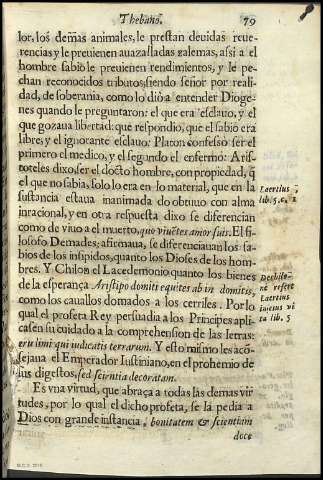 Thebano. 79
lor, los demas animales, le prestan deuidas reue-
rencias y le preuienen auazalladas zalemas, assi a el
hombre sabio le preuienen rendimientos, y le pe-
chan reconocidos tributos; siendo señor por reali-
dad, de soberania, como lo dió a entender Dioge-
nes quando le preguntaron: el que era esclauo, y el
que gozaua libertad: que respondio, que el sabio era
libre, y el ignorante esclauo: Platon confesso ser el
primero el medico, y el segundo el enfermo: Aris-
toteles dixo, ser el docto hombre, con propiedad, q̃
el que no sabia, solo lo era en lo material, que en la
sustancia estaua inanimado o bruuo con alma
irracional, y en otra respuesta dixo se diferencian
como de viuo a el muerto, quo viuẽtes a mortuis. El fi-
losofo Demades, afirmaua, se diferenciauan los sa-
bios de los insipidos, quanto los Dioses de los hom-
bres. Y Chilon el Lacedemonio quanto los bienes
de la esperança Aristipo domiti equites ab in domitis,
como los cauallos domados a los cerriles. Por lo
qual el profeta Rey persuadia a los Principes apli-
casen su cuidado a la comprehension de las letras:
erudimini qui iudicatis terrarum. Y esto mismo les acõ-
sejaua el Emperador Iustiniano, en el prohemio de
sus digestos, sed scientia decoratam.
Es vna virtud, que abraça a todas las demas vir
tudes, por lo qual el dicho profeta, se la pedia a
Dios con grande instancia, bonitatem & scientiam
doce
Laertius
lib. 5. c. 1
refert
Laertius
ta lib. 5